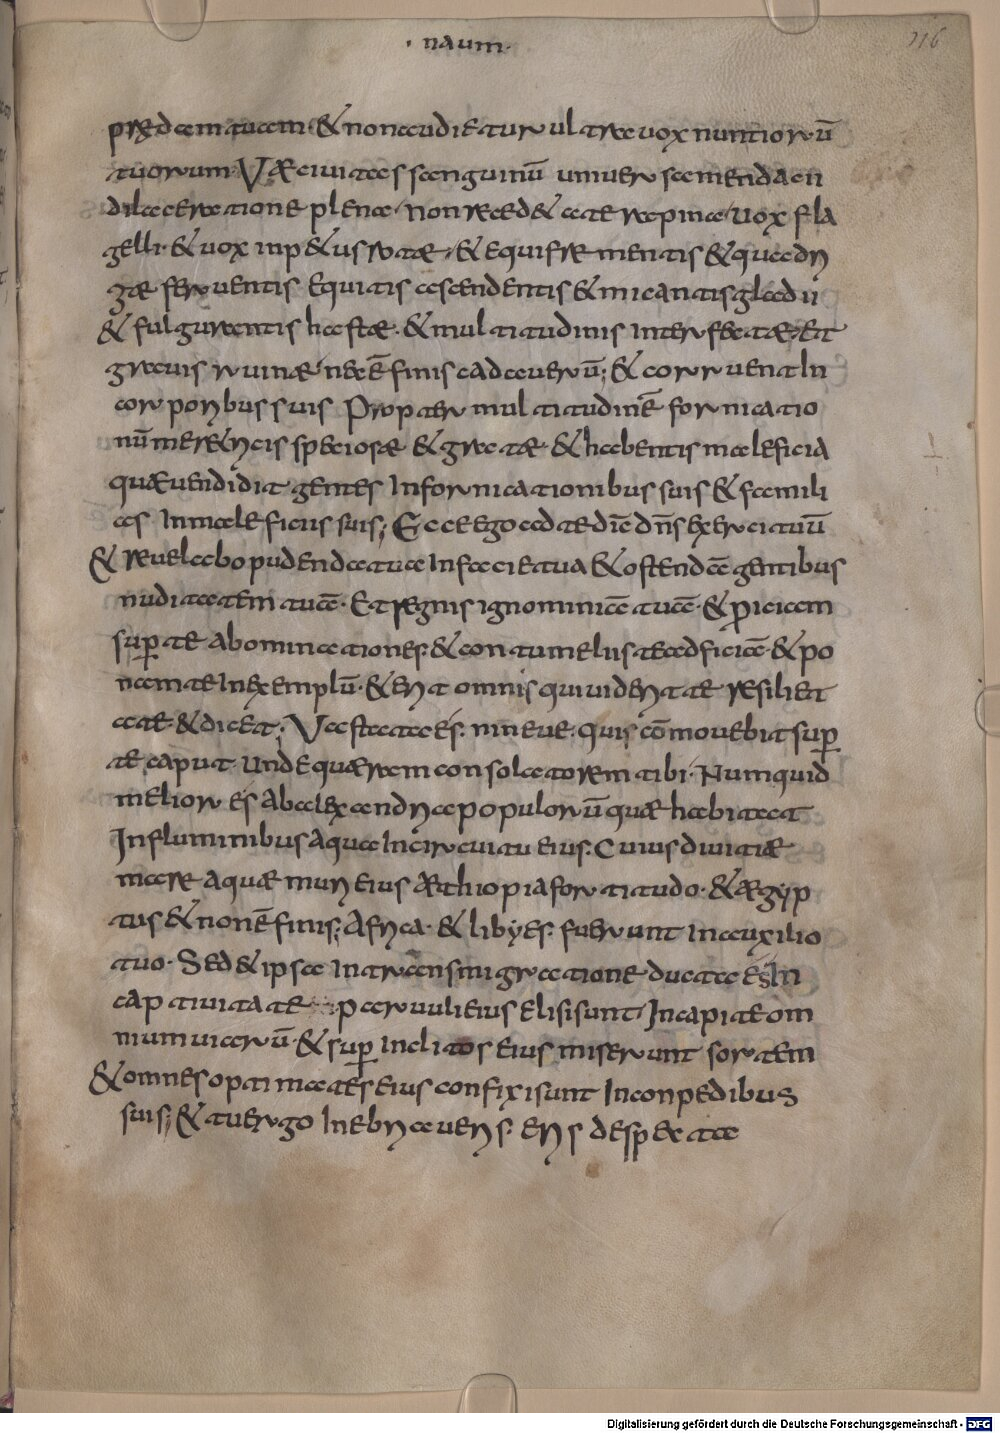 · naum ·
116
prædam tuam · & non audietur ultra vox nuntiorū
tuorum · Væ civitas sanguinū universa mendacii
dilaceratione plena · non reced& a te rapina · vox fla
gelli · & vox inp&us rotæ · & equi frementis & quadri
gæ ferventis equitis ascendentis & micantis gladii
& fulgurantis hastæ · & multitudinis interfectæ · et
gravis ruinæ nec ē finis cadaverū ; & corruent in
corporibus suis Propter multitudinē fornicatio
nū mer&ricis speciosæ & gratæ · & habentis maleficia
quæ vendidit gentes In fornicationibus suis & famili
as In maleficiis suis ; Ecce ego ad te diē dn̄s exercituū
& revelabo pudenda tua In facie tua & ostendā gentibus
nuditatem tuā · Et regnis ignominiā tuā · & p̄iciam
sup te abominationes · & contumeliis te adficiā · & po
nam te In exemplū · & erit omnis qui viderit te resiliet
a te · & dicet ; Vastata es · nineve · quis cōmovebit sup
te caput unde quæram consolatorem tibi · Numquid
melior es ab alexandria populorū quæ habitat
In fluminibus Aqua In circuitu eius · Cuius divitiæ
mare aquæ muri eius Æthiopia fortitudo · & ægyp
tus & non ē finis ; Africa · & libyes · fuerunt In auxilio
tuo · Sed & ipsa In transmigratione ducta est In
captivitatē parvuli eius elisi sunt In capite om
nium viarū · & sup inclitos eius miserunt sortem
& omnes optimates eius confixi sunt In conpedibus
suis ; & tu ergo Inebriaveris · eris despecta
Digitalisierung gefördert durch die Deutsche Forschungsgemeinschaft - DFG